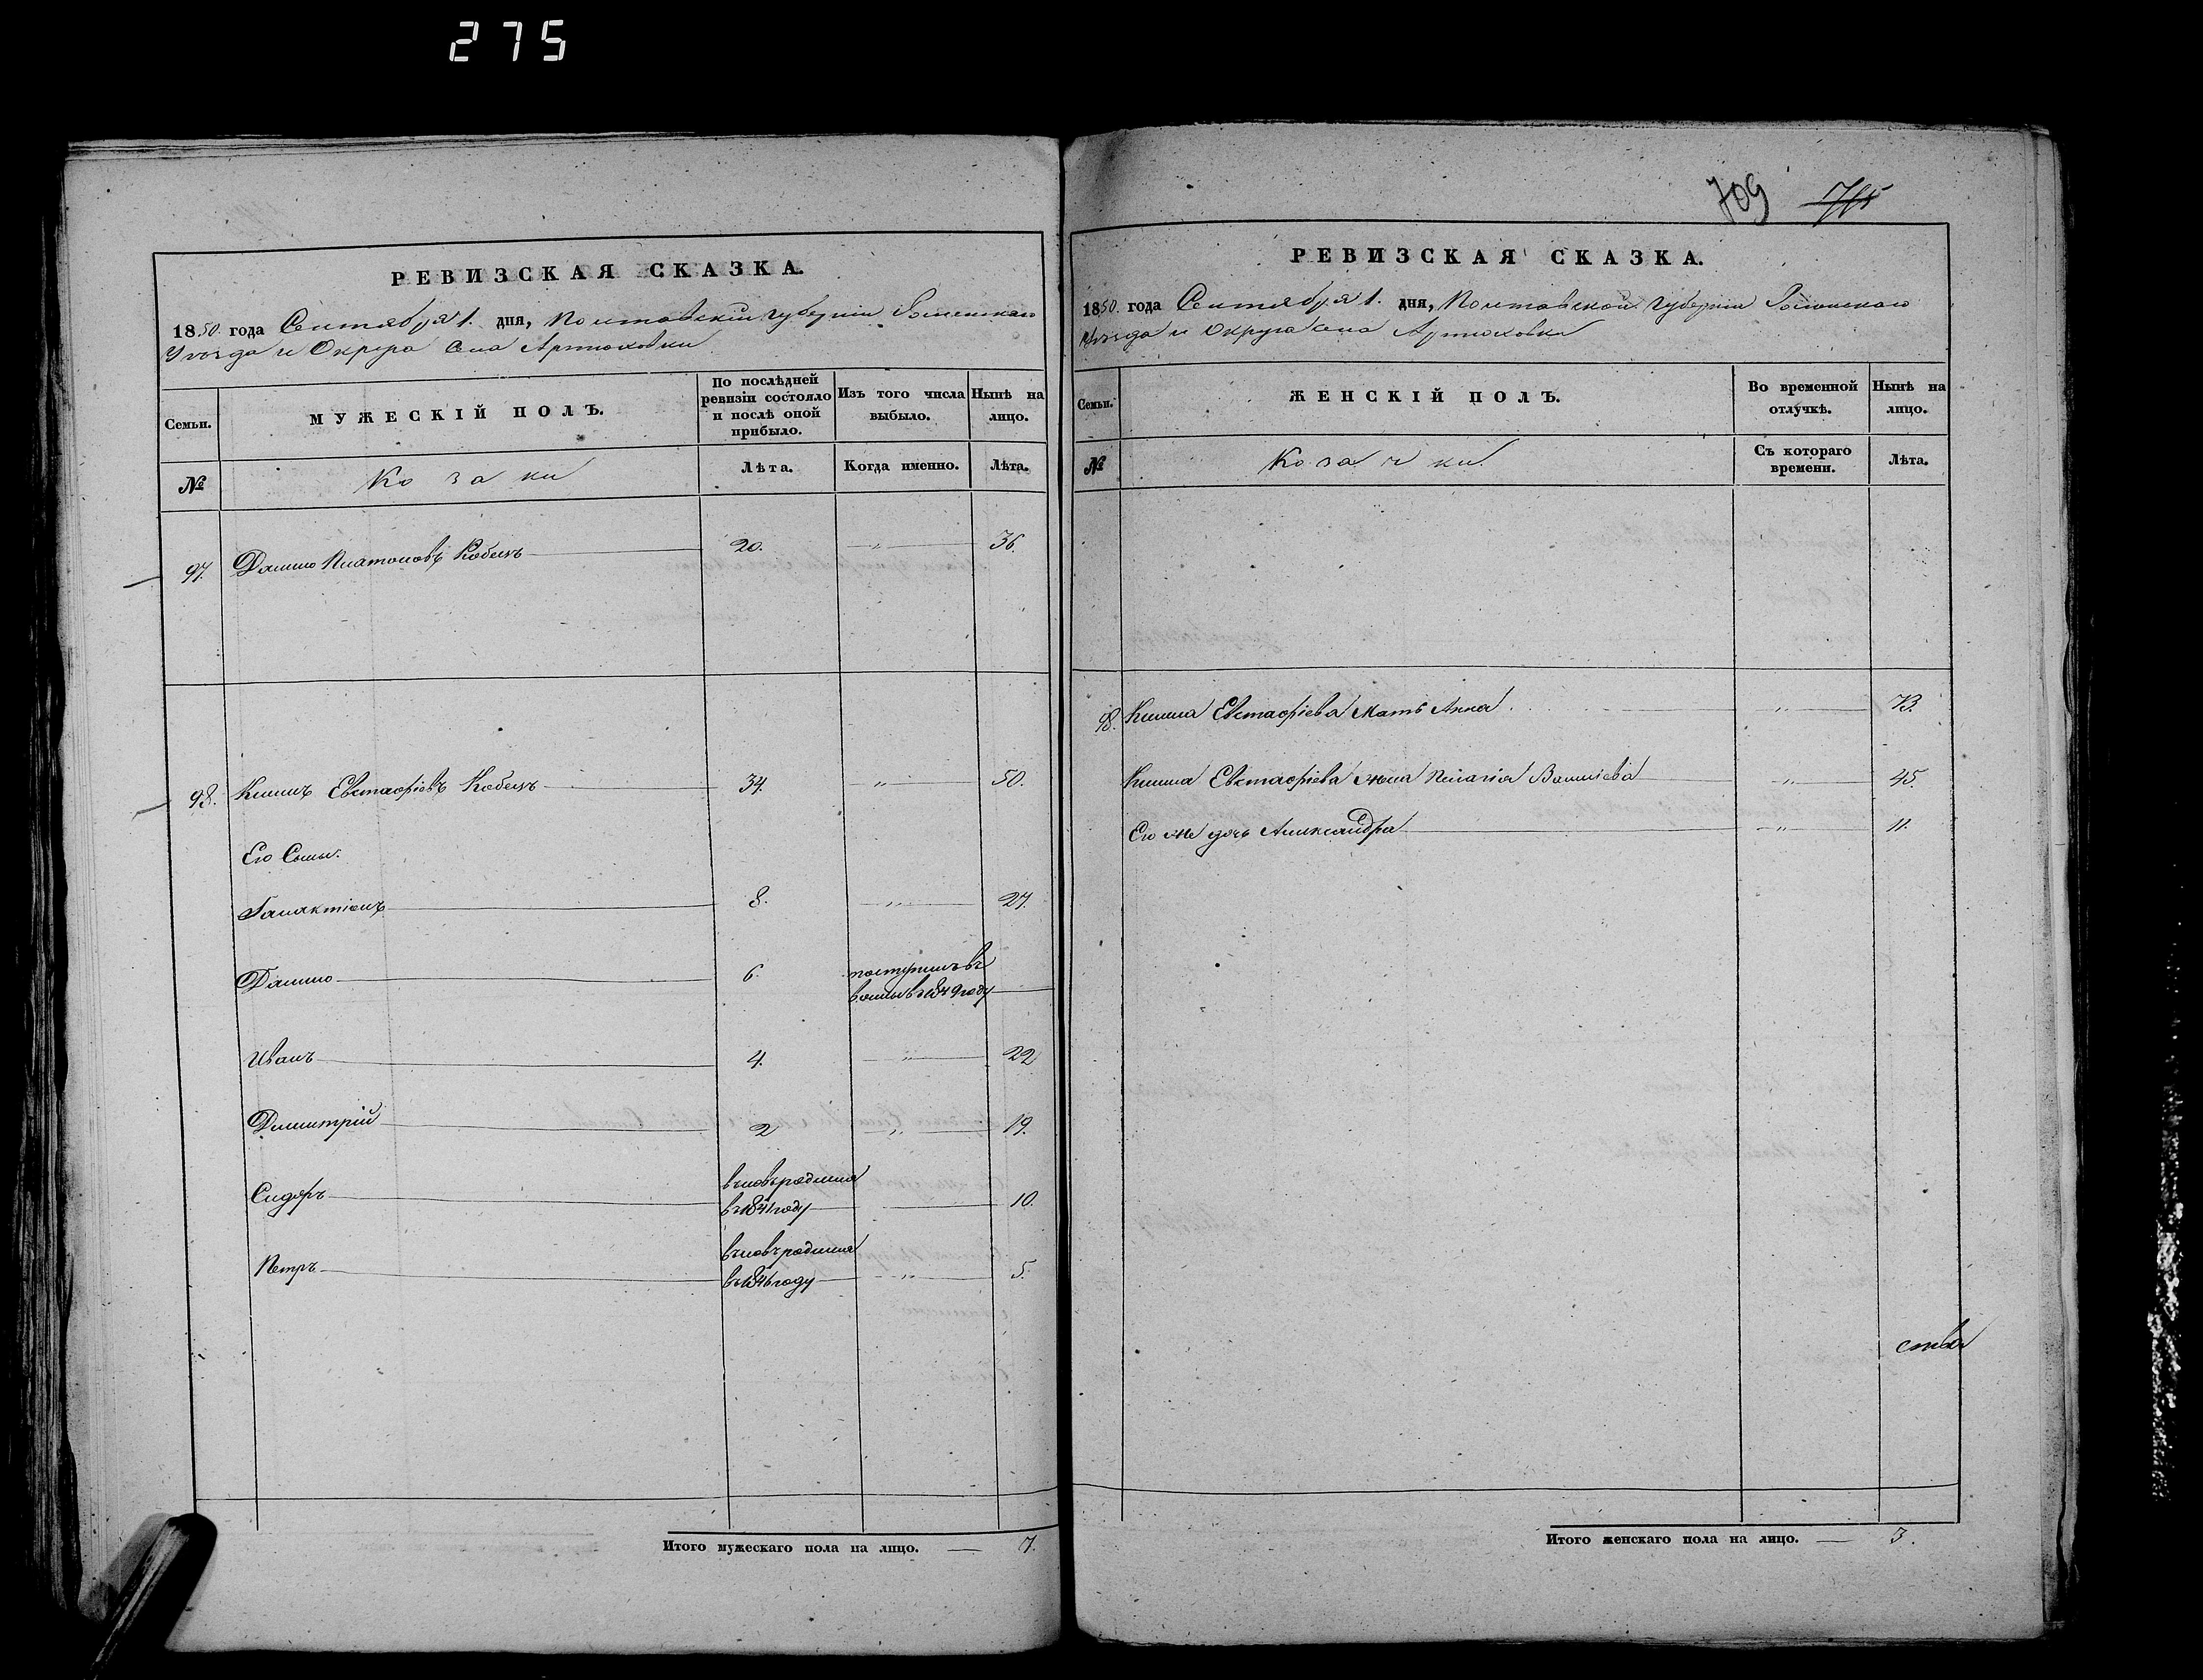 275
РЕВИЗСКАЯ СКАЗКА.
1850. года Сентября 1. дня, Полтавской губерніи Роменскаго
Уѣзда и Округа Села Артюховки
Семьи.
МУЖЕСКІЙ ПОЛЪ.
По послѣдней ревизіи состояло и послѣ оной прибыло.
Изъ того числа выбыло.
Нынѣ на лицо.
№
Козаки
Лѣта.
Когда именно.
Лѣта.
97. Данило Платоновъ Кобецъ 20. " 36.
98. Климъ Евстафіевъ Кобецъ 34. " 50.
Его Сыны.
Галактіонъ 8. " 27.
Данило 6. поступилъ въ
въ 1849 году
Иванъ 4. " 22
Димитрій 2 " 19.
Сидоръ вновь родился
въ 1841 году 10.
Петръ вновь родился
въ 1846 году " 5.
Итого мужескаго пола на лицо. — 7.
709 715
РЕВИЗСКАЯ СКАЗКА.
1850. года Сентября 1. дня, Полтавской Губерніи Роменскаго
Уѣзда и Округа села Артюховки
Семьи.
ЖЕНСКІЙ ПОЛЪ.
Во временной отлучкѣ.
Нынѣ на лицо.
№
Козачки.
Съ котораго времени.
Лѣта.
98. Клима Евстафіева Мать Анна " 73.
Клима Евстафіева жена Пелагія Василіева " 45.
Его же дочь Александра " 11.
ства
Итого женскаго пола на лицо. — 3.